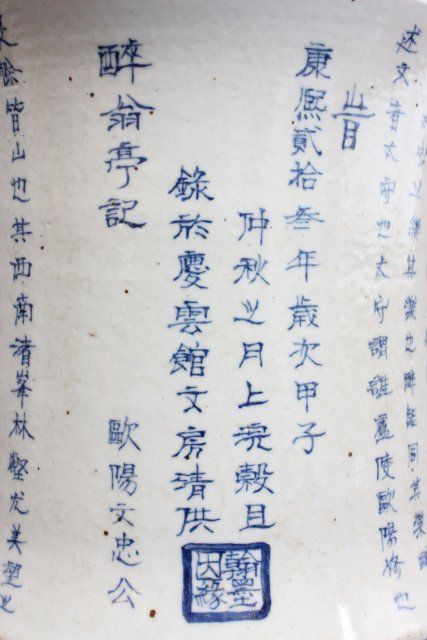 其樂也醉能同其樂醒
述文者太守也太守謂誰廬陵歐陽修也
旹
康熙貳拾叁年歲次甲子
仲秋之月上浣穀旦
錄於慶雲館文房清供
翰墨因緣
醉翁亭記
歐陽文忠公
滁皆山也其西南渚峯林壑尤美望之